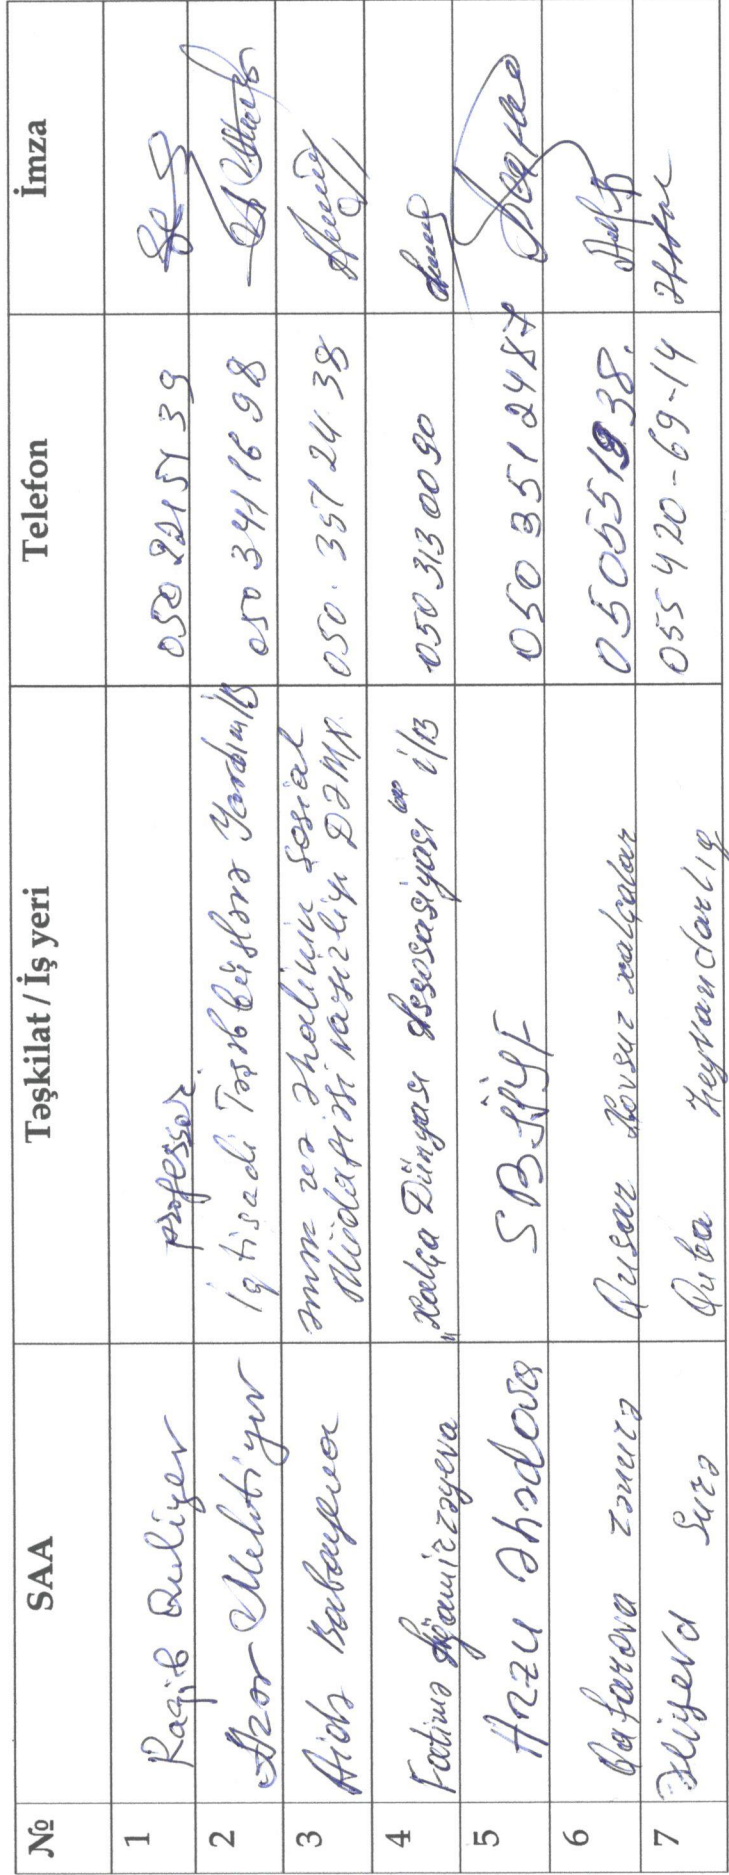 № SAA Təşkilat / İş yeri Telefon İmza
1 Raqib Quliyev professor 050 221 51 39
2 Azər Mehtiyev İqtisadi Təşəbbüslərə Yardım İB 050 341 16 98
3 Aidə Babayeva Əmək və Əhalinin Sosial
Müdafiəsi Nazirliyi DƏMX 050. 351 24 38
4 Fatimə Ağamirzəyeva "Xalça Dünyası Assosasiyası" İ/B 050 313 00 90
5 Arzu Əhədova SBİİYF 050 351 24 87
6 Qafarova Zənurə Qusar Xovsuz xalçalar 050 55 19 38.
7 Əliyeva Surə Quba Heyvandarlıq 055 420-69-14